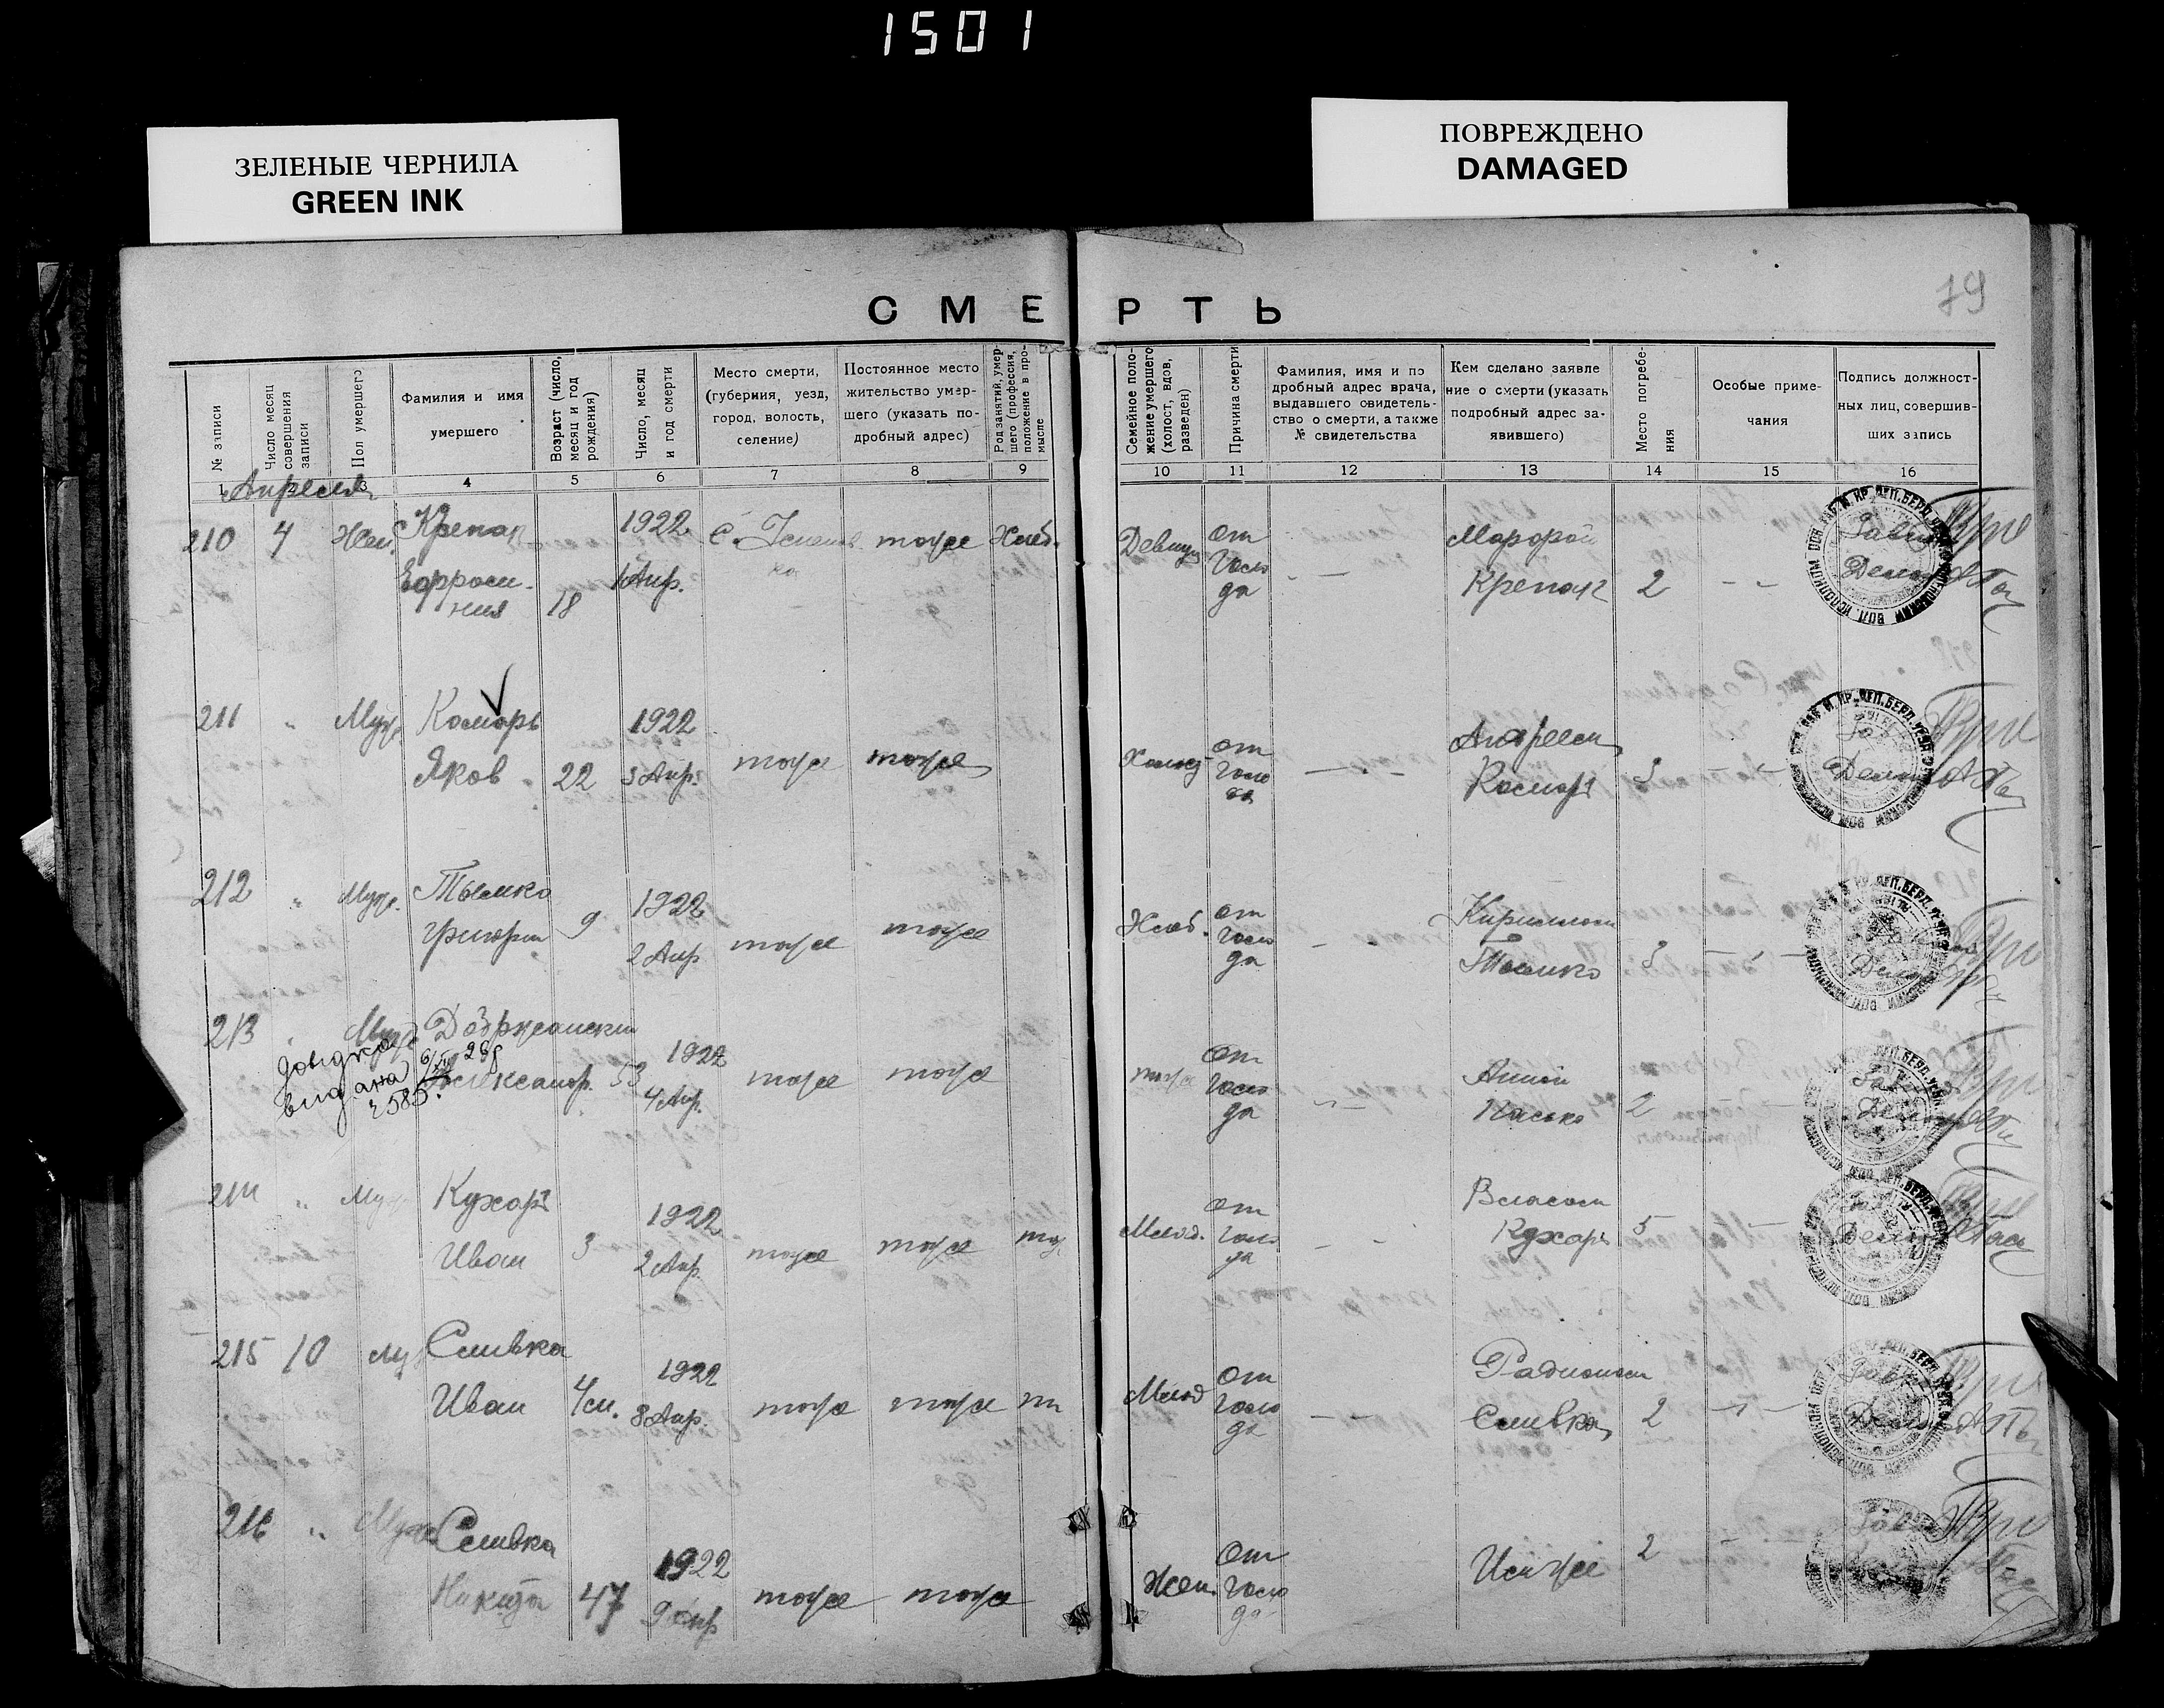 1501
ЗЕЛЕНЫЕ ЧЕРНИЛА
GREEN INK
ПОВРЕЖДЕНО
DAMAGED
79
СМЕРТЬ
№ записи
Число месяц совершения записи
Пол умершего
Фамилия и имя умершего
Возраст (число, месяц и год рождения)
Число, месяц и год смерти
Место смерти, (губерния, уезд, город, волость, селение)
Постоянное место жительство умершего (указать подробный адрес)
Род занятий, умершего (профессия, положение в промысле
Семейное положение умершего (холост, вдов, разведен)
Причина смерти
Фамилия, имя и подробный адрес врача, выдавшего свидетельство о смерти, а также № свидетельства
Кем сделано заявление о смерти (указать подробный адрес заявившего)
Место погребения
Особые примечания
Подпись должностных лиц, совершивших запись
1 2 3 4 5 6 7 8 9 10 11 12 13 14 15 16
Апреля
210 4 Жен. Крепак 1922 с. тоже Хлеб. Девица от
Ефросиния 18 1 Апр. голода Крепак 2
211 " Муж. Комарь 1922 Андреем
Яков 22 3 Апр. тоже тоже Холост от голода Комарь 3
212 " Муж. Тымко 1922 от Кириллом
Григорий 9 2 Апр. тоже тоже голода Тымко 3
213 " Муж. 1922 от Анной
Александр. 53 4 Апр. тоже тоже тоже голода Пасько 2
довидка
видана
2585.
214 " Муж Кухарь 1922 от Власом
Иван 3 2 Апр. тоже тоже Молод. голода Кухарь 5
215 10 муж Сливка 1922 от Радионом
Иван 4 м. 8 Апр. тоже тоже Молод голода Сливка 2
216 " Муж Сливка 1922 от
Никита 47 9 Апр тоже тоже Жен. голода Им же 2